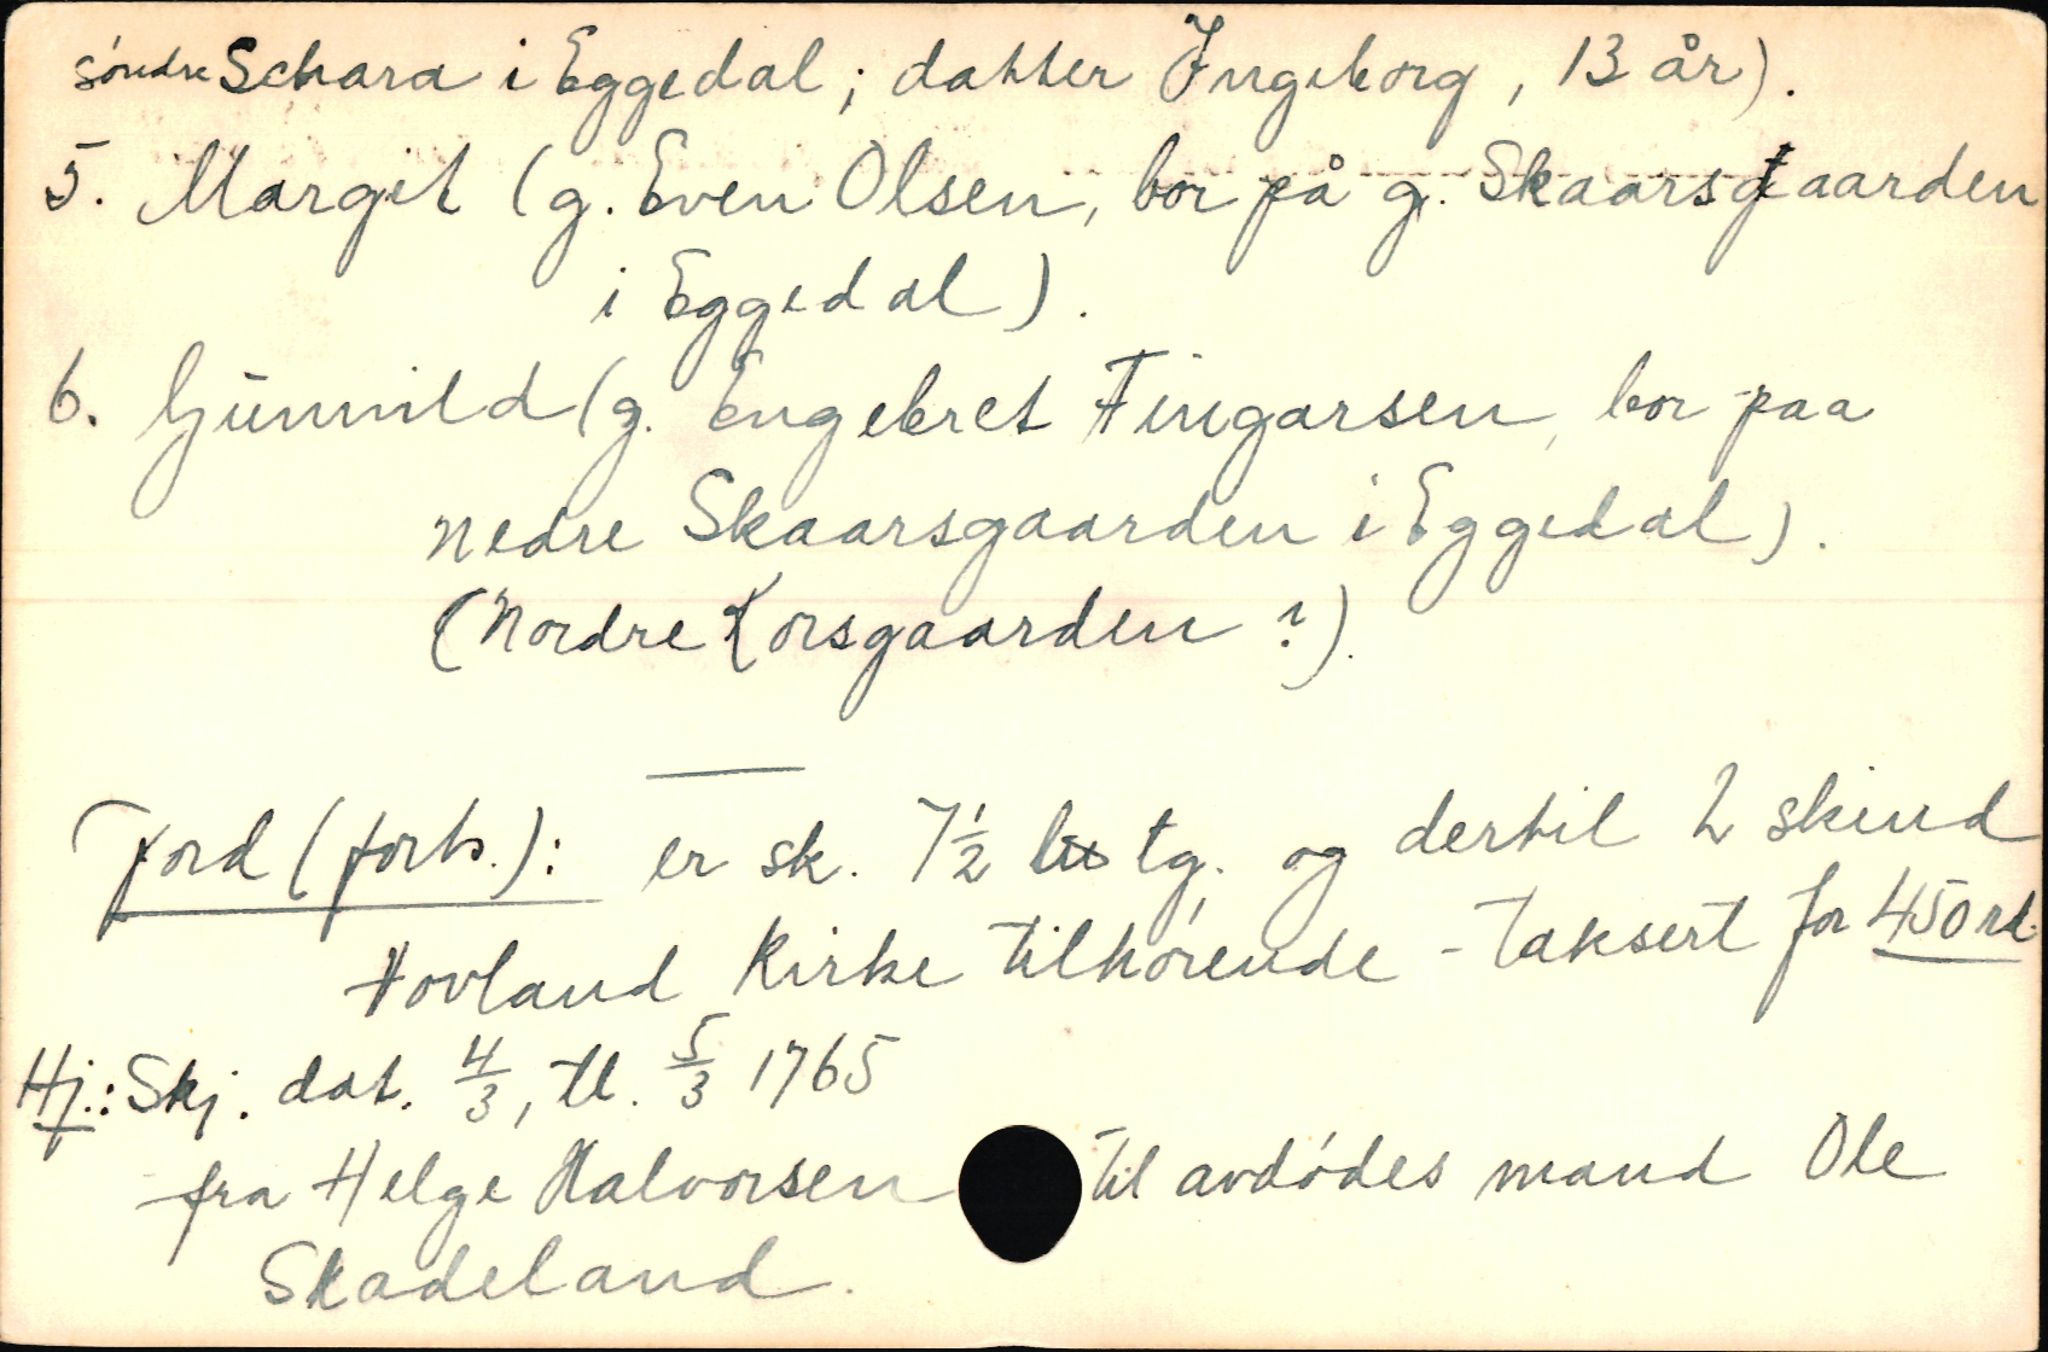 søndre Schara i Eggedal; datter Ingeborg, 13 år).
5. Margit (g. Even Olsen, bor på g. Skaarsgaarden
i Eggedal).
6. Gunnild (g. Engebret Fingarsen, bor paa
nedre Skaarsgaarden i Eggedal).
(Nordre Korsgaarden?).
Jord (forts.): er sk. 7½ tg. og dertil 2 skind
Hovland Kirke tilhørende - taksert for 450 rd.
Hj.: Skj. dat. 4/3, tl. 5/3 1765
fra Helge Halvorsen til avdødes mand Ole
Skadeland.